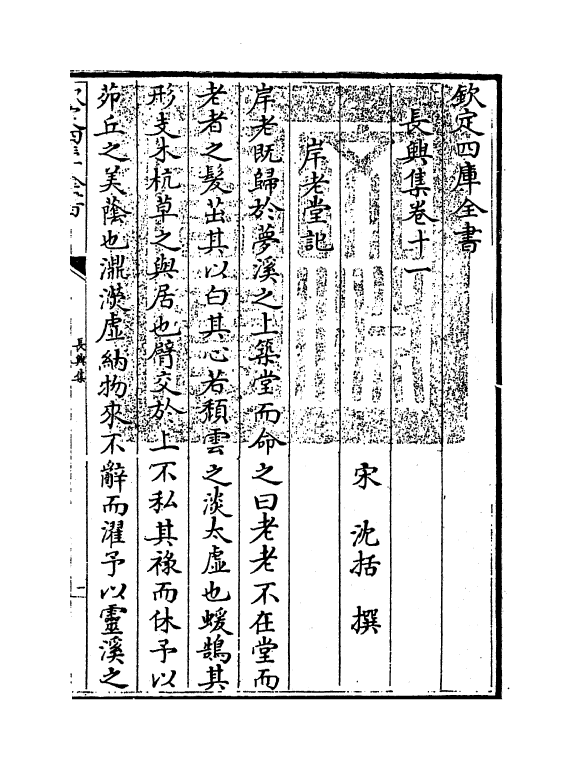 欽定四庫全書
長興集卷十一
宋 沈括 撰
岸老堂記
岸老既歸於夢溪之上築堂而命之曰老老不在堂而
老者之髮茁其以白其心若頽雲之淡太虚也蝯鵠其
形支朱杭草之與居也臂交於上不私其祿而休予以
茆丘之美蔭也瀰漾虚納物來不辭而濯予以靈溪之
長興集
一